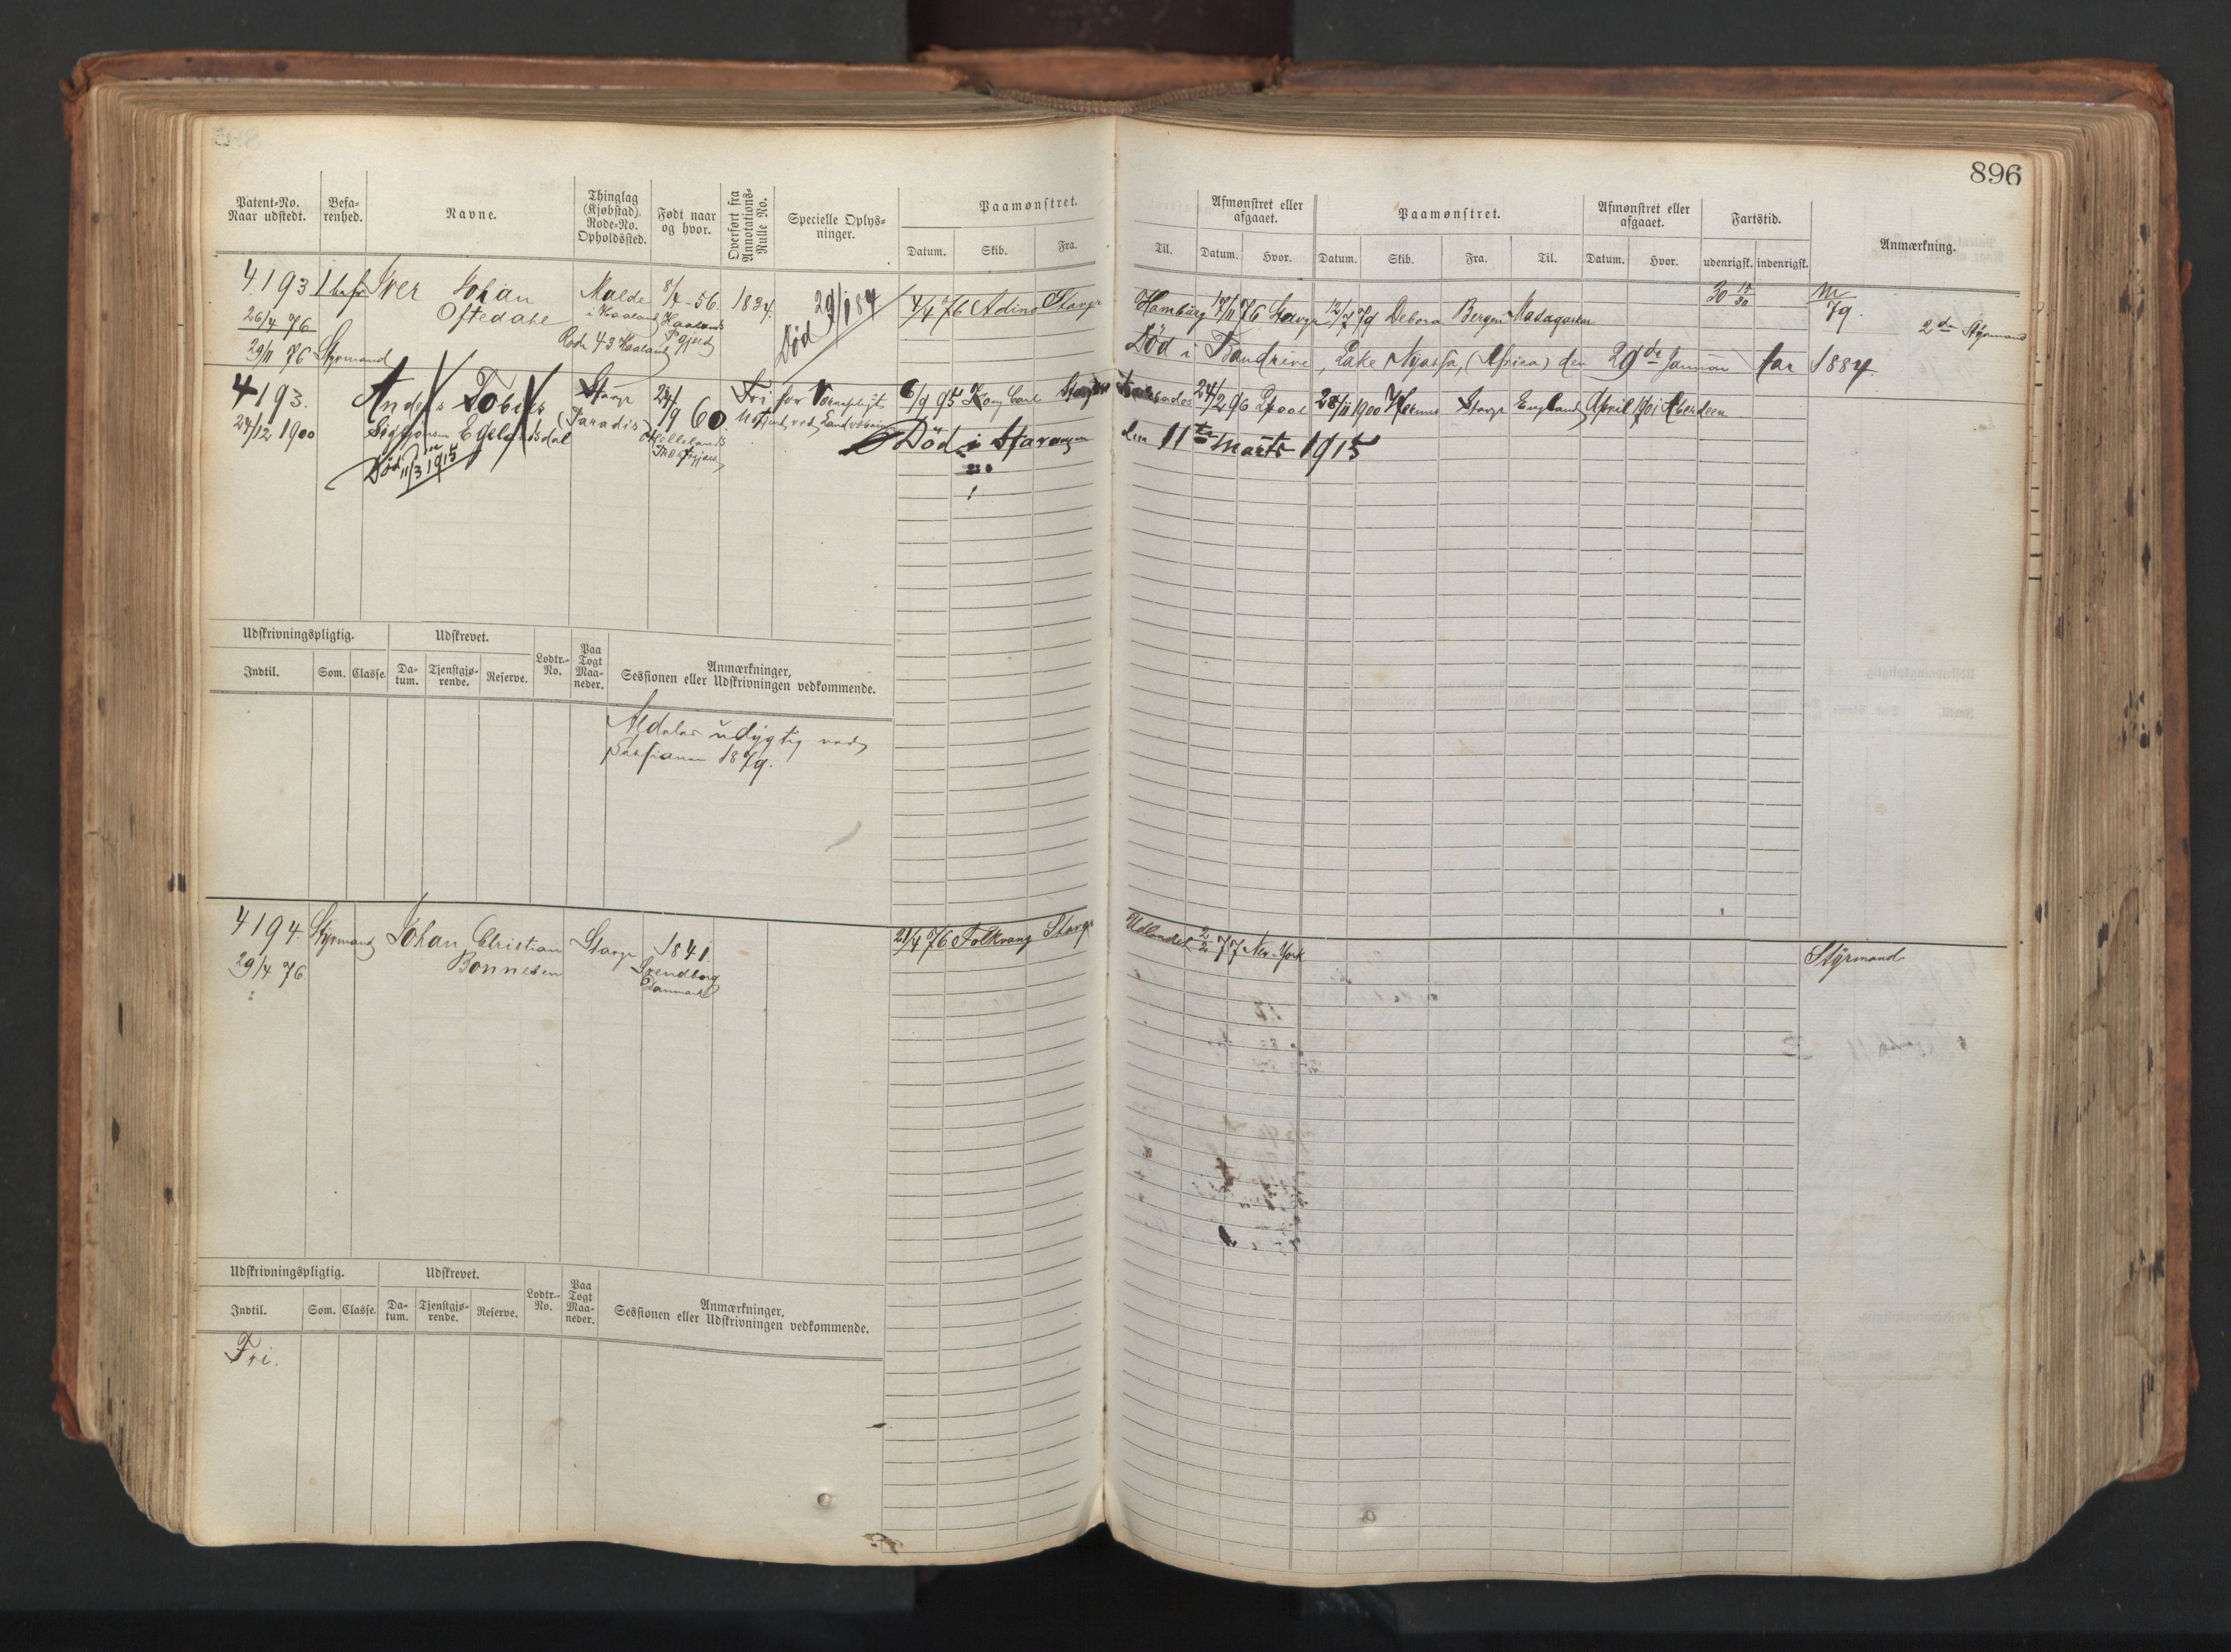 896
Patent-No.
Naar udstedt.
Befa-
renhed.
Navne.
Thinglag
(Kjøbstad).
Rode-No.
Opholdssted.
Født naar
og hvor.
Overført fra
Annotations-
Rulle No.
Specielle Oplys-
ninger.
Paamønstret.
Datum. Skib. Fra.
Til.
Afmønstret eller
afgaaet.
Datum. Hvor.
Paamønstret.
Datum. Skib. Fra. Til.
Afmønstret eller
afgaaet.
Datum. Hvor.
Fartstid.
udenrigsk. indenrigsk.
Anmærkning.
4193
26/4 76
29/11 76 Styrmand
Iver Johan
Ostedahl
Malde
i Haaland
Rode 43 Haaland
8/4-56.
Haalands
Pgjeld
1834.
Død 29/1 84
4/4 76 Adino Stavgr
Hamburg 14/11 76 Stavgr 12/7 79 Debora Bergen Madagaskar
79.
2den Styrmand
Død i Bandrive, Lake Nyassa, (Africa) den 29de Januar 1884.
4193.
24/12 1900
Anders Tobias
Sigbjørnsen Egelandsdal
Død 11/3 1915
Stavgr
(Paradis)
60.
Hellelands
Fri for Værnepligt
6/9 95 Kong Carl Stavgr
24/2 96 28/11 1900 Stavgr England April 1901 Aberdeen
Død i Stavanger den 11te Marts 1915
Udskrivningspligtig.
Indtil. Som. Classe.
Udskrevet.
Da-
tum.
Tjenstgjø-
rende.
Reserve.
Lodtr.-
No.
Paa
Togt
Maa-
neder.
Anmærkninger,
Sessionen eller Udskrivningen vedkommende.
Aldeles udygtig ved
Sessionen 1879.
4194. Styrmand
29/4 76
Johan Christian
Bonnesen
Stavgr
1841.
Svendborg
Danmark
21/4 76 Folkvang Stavgr
Udlandet 2/2 77 New-York
Styrmand
Udskrivningspligtig.
Indtil. Som. Classe.
Udskrevet.
Da-
tum.
Tjenstgjø-
rende.
Reserve.
Lodtr.-
No.
Paa
Togt
Maa-
neder.
Anmærkninger,
Sessionen eller Udskrivningen vedkommende.
Fri.